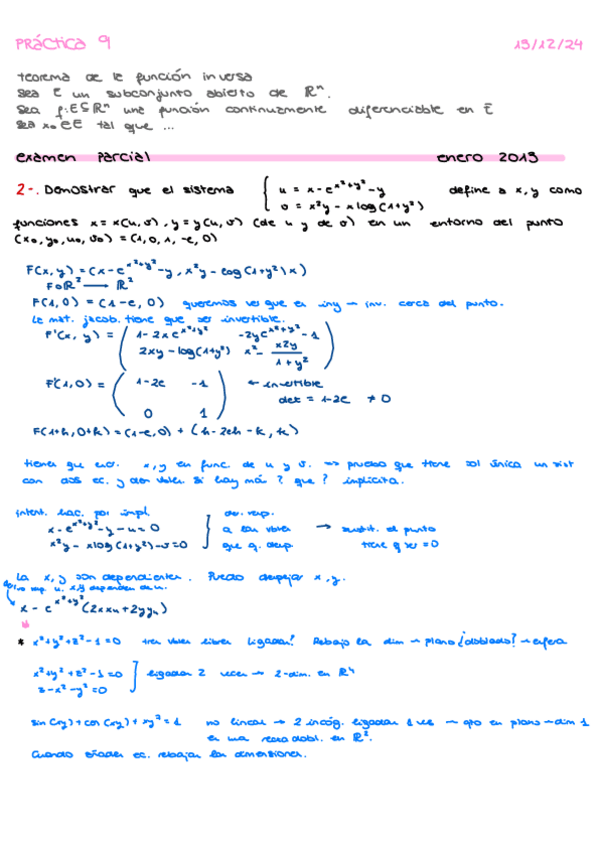 PRÁCTICA 9 13/12/24
teorema de la función inversa
sea E un subconjunto abierto de ℝⁿ.
sea f: E⊆ℝⁿ una función continuamente diferenciable en E
sea x₀ ∈ E tal que ...
examen Parcial enero 2013
2-. Demostrar que el sistema { u = x - e^{x²+y²} - y define a x, y como
v = x²y - x log(1+y²)
funciones x = x(u,v), y = y(u,v) (de u y de v) en un entorno del punto
(x₀, y₀, u₀, v₀) = (1, 0, 1, -e, 0)
F(x,y) = (x - e^{x²+y²} - y, x²y - log(1+y²)x)
ℝ² → ℝ²
F(1,0) = (1-e, 0) queremos ver que es iny → inv. cerca del punto.
la mat. jacob. tiene que ser invertible.
F'(x,y) = ( 1-2xe^{x²+y²} -2ye^{x²+y²} - 1
2xy - log(1+y²) x² - x2y / 1+y² )
F'(1,0) = ( 1-2e -1 ← invertible
det = 1-2e ≠ 0
0 1 )
F(1+h, 0+k) = (1-e, 0) + (h - 2eh - k, k)
x, y en func. de u y v. que tiene sol única un sist
con dos ec. y dar valer. si hay más ? que ? implícita.
x - e^{x²+y²} - y - u = 0
x²y - x log(1+y²) - v = 0 → sustit. el punto
tiene q ser = 0
La x, y son dependientes. Puedo despejar x, y.
x - e^{x²+y²}(2xxᵤ + 2yyᵤ)
* x²+y²+z²-1=0 Rebajo la dim → plano ¿doblado? → esfera
x²+y²+z²-1=0
z-x²-y²=0 } 2 veces → 2-dim. en ℝ⁴
sin(xy) + cos(xy) + xy² = 1 no lineal → 2 incóg. en plano → dim 1
es una recta dobl. en ℝ².
Cuando añades ec. rebajas las dimensiones.